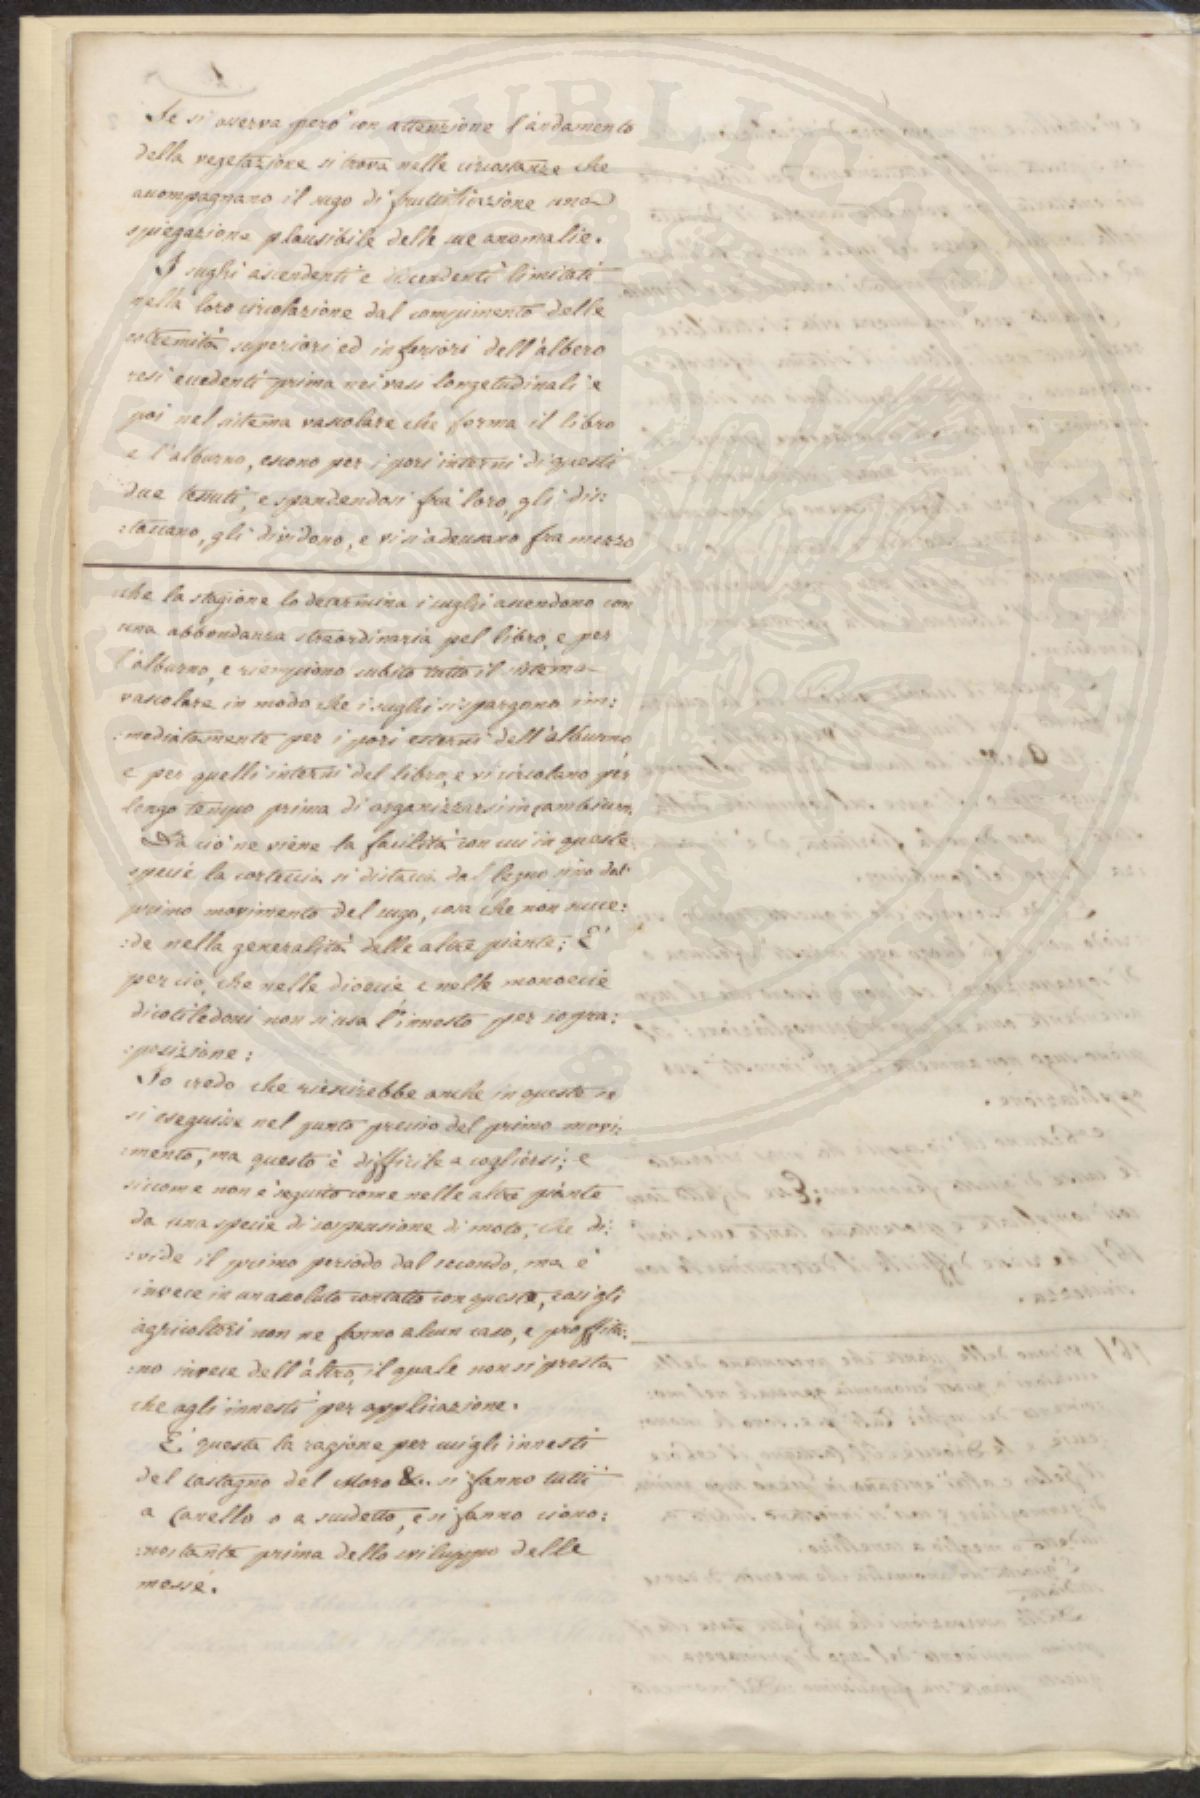 Se si osserva però con attenzione l'andamento
della vegetazione si trova nelle circostanze che
accompagnano il sugo di fruttificazione una
spiegazione plausibile delle sue anomalie.
I sughi ascendenti e discendenti limitati
nella loro circolazione dal compimento delle
estremità superiori ed inferiori dell'albero
resi eccedenti prima nei vasi longetudinali e
poi nel sistema vascolare che forma il libro
e l'alburno, escono per i pori interni di questi
due tessuti, e spandendosi frà loro, gli dis:
:taccano, gli dividono, e vi s'addensano fra mezzo
che la stagione lo determina i sughi ascendono con
una abbondanza straordinaria pel libro, e per
l'alburno, e riempiono subito tutto il sistema
vascolare in modo che i sughi si spargono im:
:mediatamente per i pori esterni dell'alburno,
e per quelli interni del libro, e vi circolano per
longo tempo prima di organizzarsi in cambium.
Da ciò ne viene la facilità con cui in queste
specie la corteccia si distacca dal legno sino dal
primo movimento del sugo, cosa che non succe:
:de nella generalità delle altre piante; E'
per ciò, che nelle dioecie e nelle monoecie
dicotiledoni non si usa l'innesto per sopra:
:posizione:
Io credo che riescirebbe anche in queste se
si eseguisse nel punto preciso del primo movi:
:mento, ma questo è difficile a cogliersi; e
siccome non è seguito come nelle altre piante
da una specie di sospensione di moto, che di:
:vide il primo periodo dal secondo, ma è
invece in un assoluto contatto con questo, così gli
agricoltori non ne fanno alcun caso, e proffitta:
:no invece dell'altro, il quale non si presta
che agli innesti per applicazione.
E' questa la ragione per cui gli innesti
del castagno del Moro &. si fanno tutti
a Canello o a scudetto, e si fanno ciono:
:nostante prima dello sviluppo delle
messe.